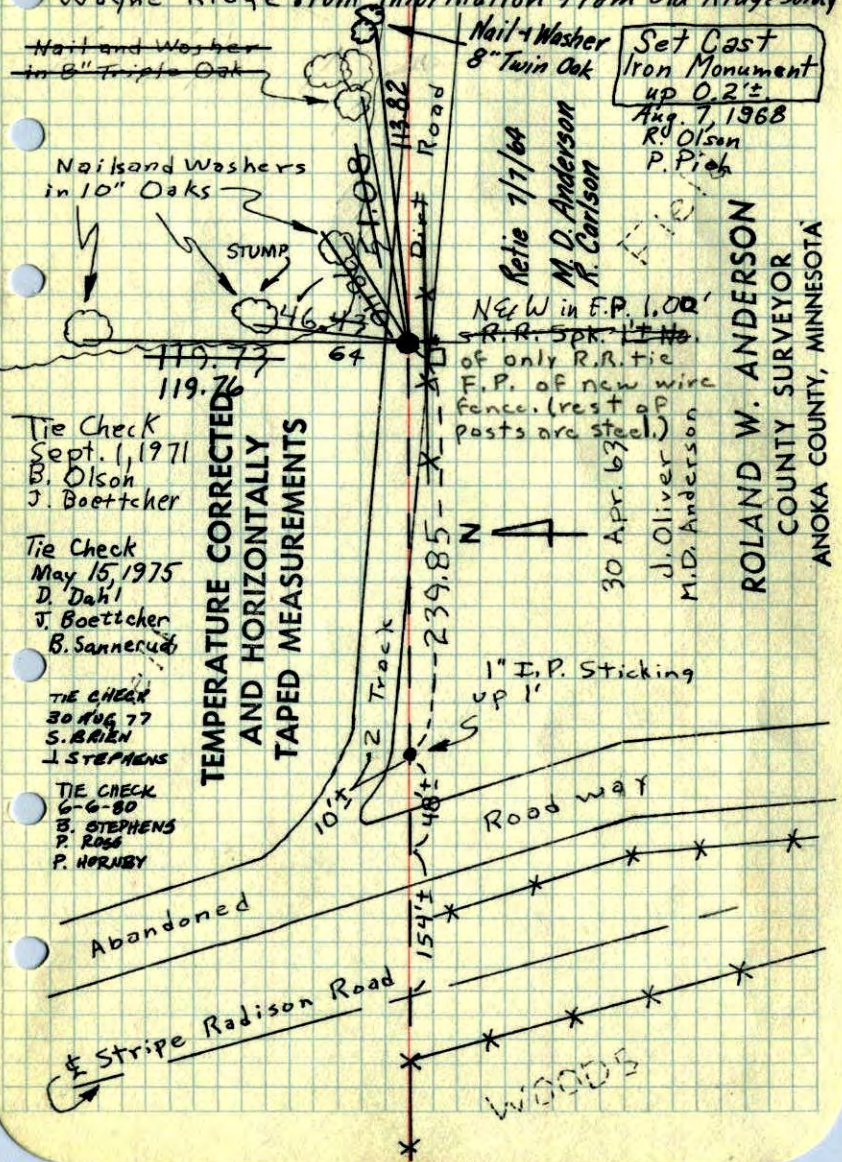 Wayne Ridge from information from old Ridge survey
Nail and Washer
in 8" Triple Oak
Nail & Washer
8" Twin Oak
Set Cast
Iron Monument
up 0.2'±
Aug. 7, 1968
R. Olson
P. Pich
113.82
Road
Dirt
51.08
Nails and Washers
in 10" Oaks
STUMP
46.43
64
119.73
119.76
Retie 7/7/64
M. D. Anderson
R. Carlson
Field
N&W in F.P. 1.00'
R.R. Spk. 1'± No.
of only R.R. tie
F.P. of new wire
fence. (rest of
posts are steel.)
30 Apr. 63
J. Oliver
M.D. Anderson
ROLAND W. ANDERSON
COUNTY SURVEYOR
ANOKA COUNTY, MINNESOTA
Tie Check
Sept. 1, 1971
B. Olson
J. Boettcher
Tie Check
May 15, 1975
D. Dahl
J. Boettcher
B. Sannerud
TIE CHECK
30 AUG 77
S. BRIEN
J STEPHENS
TIE CHECK
6-6-80
B. STEPHENS
P. ROSS
P. HORNBY
TEMPERATURE CORRECTED
AND HORIZONTALLY
TAPED MEASUREMENTS
N
239.85
2 Track
1" I.P. Sticking
up 1'
10'±
48'±
Road way
Abandoned
154'±
℄ Stripe Radison Road
WOODS